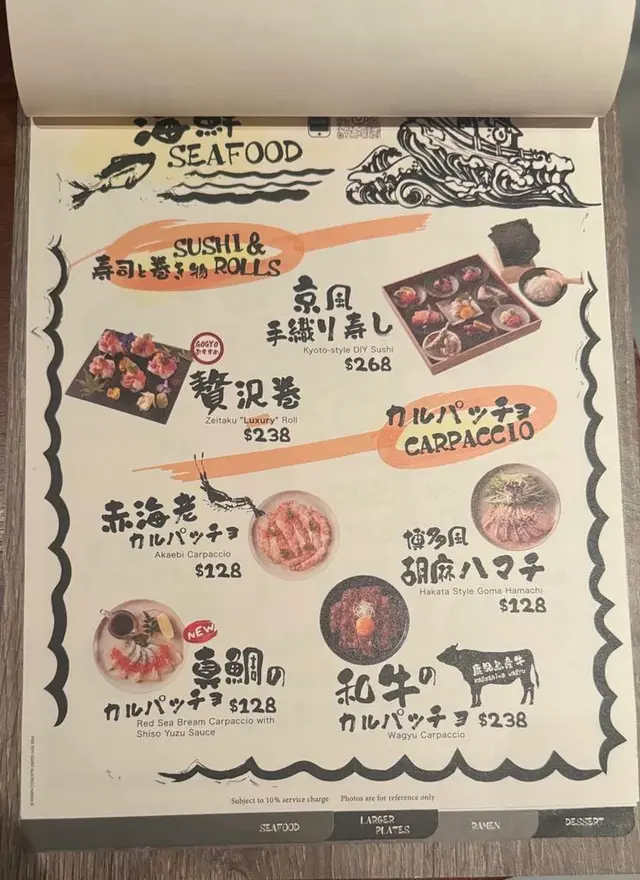 海鮮
SEAFOOD
SUSHI &
寿司と巻き物 ROLLS
京風
手織り寿し
Kyoto-style DIY Sushi
$268
GOGYO
おすすめ
贅沢巻
Zeitaku "Luxury" Roll
$238
カルパッチョ
CARPACCIO
赤海老
カルパッチョ
Akaebi Carpaccio
$128
博多風
胡麻ハマチ
Hakata Style Goma Hamachi
$128
NEW
真鯛の
カルパッチョ $128
Red Sea Bream Carpaccio with
Shiso Yuzu Sauce
鹿児島産牛
KAGOSHIMA WAGYU
和牛の
カルパッチョ $238
Wagyu Carpaccio
Subject to 10% service charge Photos are for reference only
SEAFOOD
LARGER
PLATES
RAMEN
DESSERT